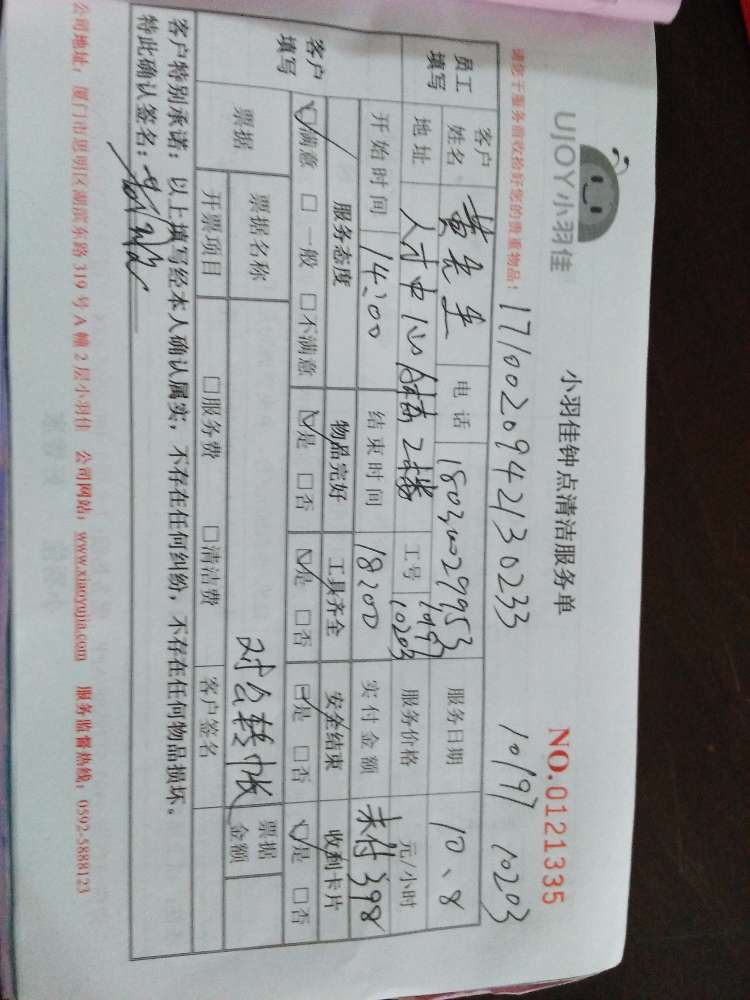 UJOY小羽佳
小羽佳钟点清洁服务单
NO.0121335
请您于服务前收拾好您的贵重物品!
1710020942130233 10197 10203
员工填写
客户姓名 黄先生 电话 18030029953 服务日期 10、8
地址 人才中心 2楼 工号 10197 10203 服务价格 元/小时
开始时间 14:00 结束时间 18:00 实付金额 未付398
客户填写
服务态度 物品完好 工具齐全 安全结束 收到卡片
☑满意 □一般 □不满意 ☑是 □否 ☑是 □否 ☑是 □否 ☑是 □否
票据 票据名称 对公转帐 票据金额
开票项目 □服务费 □清洁费 客户签名
客户特别承诺:以上填写经本人确认属实,不存在任何纠纷,不存在任何物品损坏。
特此确认签名:
公司地址:厦门市思明区湖滨东路 319 号 A 幢 2 层小羽佳 公司网站:www.xiaoyujia.com 服务监督热线:0592-5888123